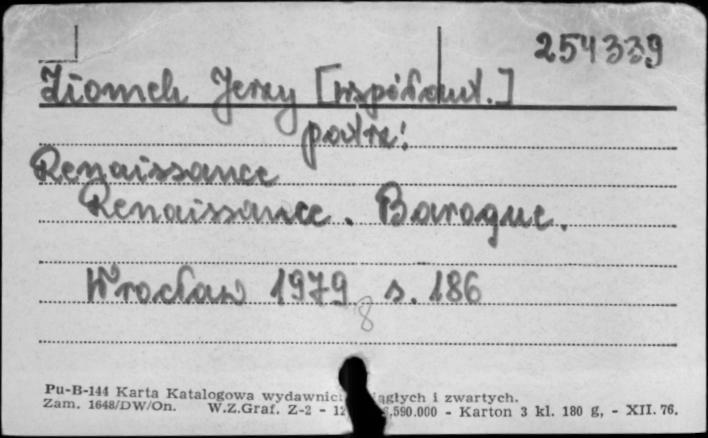 254339
Ziomek Jerzy [współaut.]
patrz:
Renaissance
Renaissance. Baroque.
Wrocław 1979 s. 186
8
Pu-B-144 Karta Katalogowa wydawnict ciągłych i zwartych.
Zam. 1648/DW/On. W.Z.Graf. Z-2 - .590.000 - Karton 3 kl. 180 g, - XII. 76.